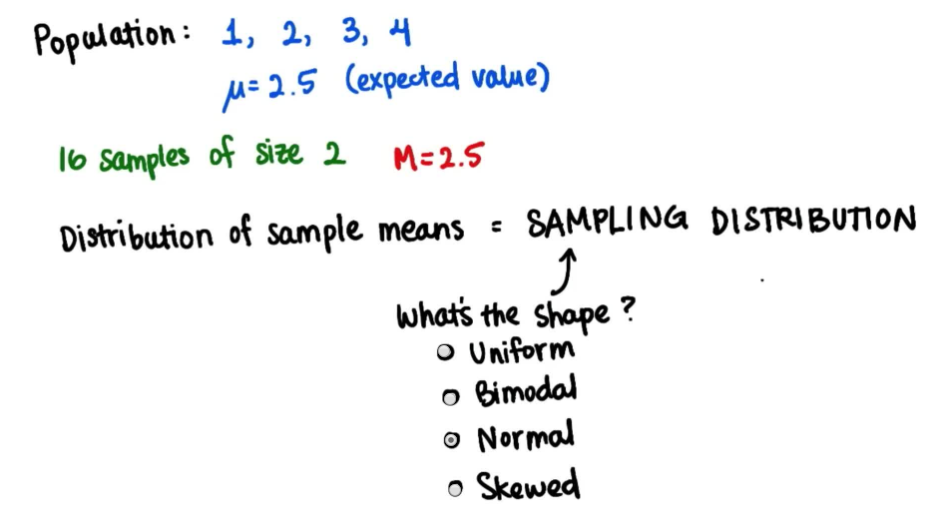 Population: 1, 2, 3, 4
μ=2.5 (expected value)
16 samples of size 2 M=2.5
Distribution of sample means = SAMPLING DISTRIBUTION
What's the shape?
Uniform
Bimodal
Normal
Skewed